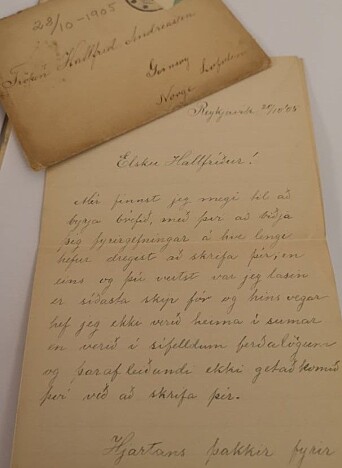 28/10-1905
Frøken Hallfred Andreassen
Norge
Reykjavik 20/10 '05
Elsku Hallfríður!
Mér finnst jeg megi til að
byrja bréfið, með þvi að biðja
þig fyrirgefningar á hve lengi
hefur dregist að skrifa þér, en
eins og þú veitst var jeg lasin
er síðasta skip fór og hins vegar
hef jeg ekki verið heima í sumar
en verið í sífelldum ferðalögum
og þaraf leiðandi ekki getað komið
því við að skrifa þér.
Hjartans þakkir fyrir